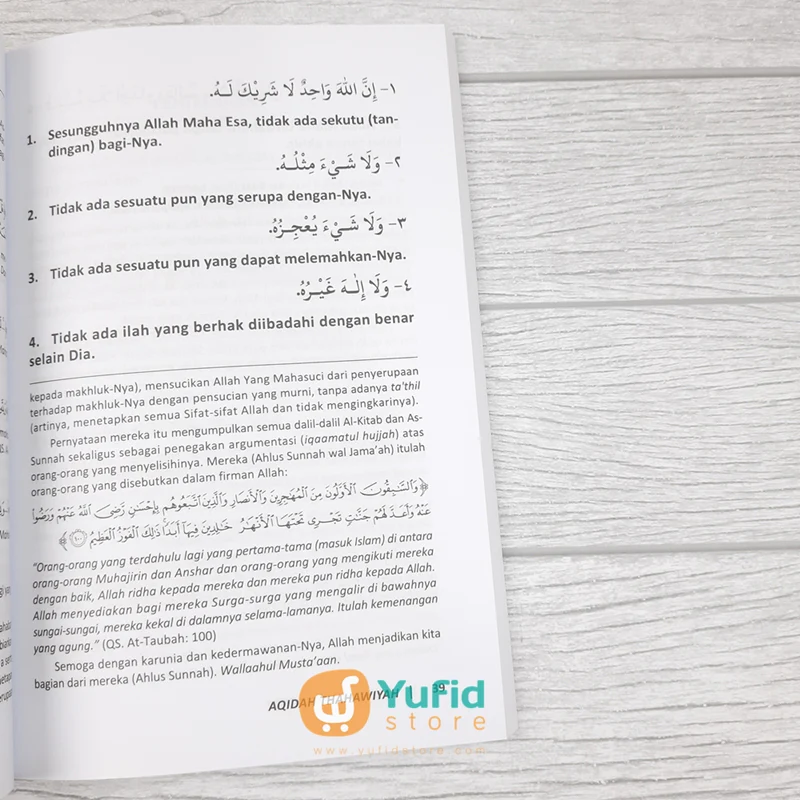 ١- إِنَّ اللهَ وَاحِدٌ لَا شَرِيْكَ لَـهُ.
1. Sesungguhnya Allah Maha Esa, tidak ada sekutu (tan-
dingan) bagi-Nya.
٢- وَلَا شَـيْءَ مِثْلُـهُ.
2. Tidak ada sesuatu pun yang serupa dengan-Nya.
٣- وَلَا شَـيْءَ يُعْجِـزُهُ.
3. Tidak ada sesuatu pun yang dapat melemahkan-Nya.
٤- وَلَا إِلٰـهَ غَيْـرُهُ.
4. Tidak ada ilah yang berhak diibadahi dengan benar
selain Dia.
kepada makhluk-Nya), mensucikan Allah Yang Mahasuci dari penyerupaan
terhadap makhluk-Nya dengan pensucian yang murni, tanpa adanya ta'thil
(artinya, menetapkan semua Sifat-sifat Allah dan tidak mengingkarinya).
Pernyataan mereka itu mengumpulkan semua dalil-dalil Al-Kitab dan As-
Sunnah sekaligus sebagai penegakan argumentasi (iqaamatul hujjah) atas
orang-orang yang menyelisihinya. Mereka (Ahlus Sunnah wal Jama'ah) itulah
orang-orang yang disebutkan dalam firman Allah:
﴿وَالسَّٰبِقُونَ الْأَوَّلُونَ مِنَ الْمُهَٰجِرِينَ وَالْأَنصَارِ وَالَّذِينَ اتَّبَعُوهُم بِإِحْسَٰنٍ رَّضِيَ اللَّهُ عَنْهُمْ وَرَضُوا
عَنْهُ وَأَعَدَّ لَهُمْ جَنَّٰتٍ تَجْرِي تَحْتَهَا الْأَنْهَٰرُ خَٰلِدِينَ فِيهَا أَبَدًا ذَٰلِكَ الْفَوْزُ الْعَظِيمُ ١٠٠﴾
"Orang-orang yang terdahulu lagi yang pertama-tama (masuk Islam) di antara
orang-orang Muhajirin dan Anshar dan orang-orang yang mengikuti mereka
dengan baik, Allah ridha kepada mereka dan mereka pun ridha kepada Allah.
Allah menyediakan bagi mereka Surga-surga yang mengalir di bawahnya
sungai-sungai, mereka kekal di dalamnya selama-lamanya. Itulah kemenangan
yang agung." (QS. At-Taubah: 100)
Semoga dengan karunia dan kedermawanan-Nya, Allah menjadikan kita
bagian dari mereka (Ahlus Sunnah). Wallaahul Musta'aan.
AQIDAH THAHAWIYAH | 39
Yufid
store
www.yufidstore.com